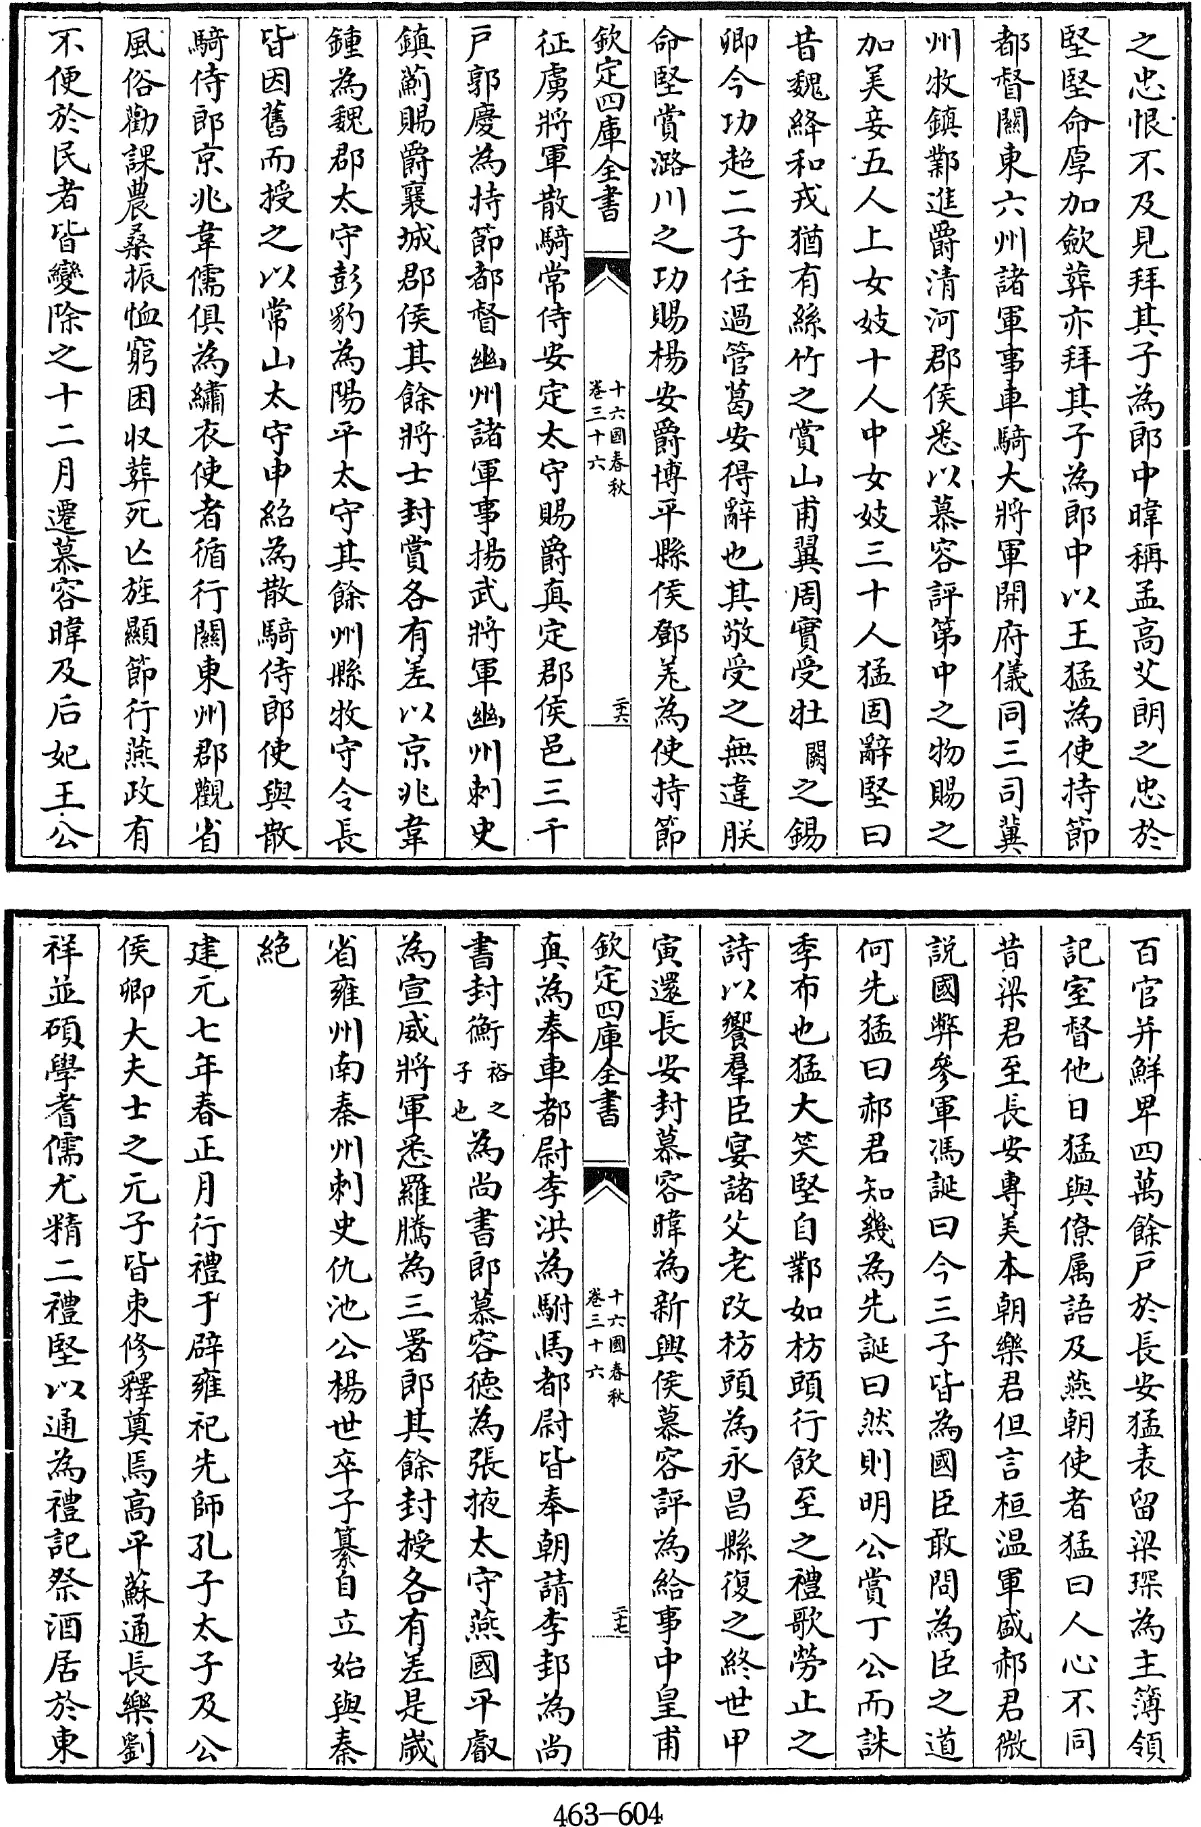 之忠恨不及見拜其子為郎中暐稱孟高艾朗之忠於
堅堅命厚加斂葬亦拜其子為郎中以王猛為使持節
都督關東六州諸軍事車騎大將軍開府儀同三司冀
州牧鎮鄴進爵清河郡侯悉以慕容評第中之物賜之
加美妾五人上女妓十人中女妓三十人猛固辭堅曰
昔魏絳和戎猶有絲竹之賞山甫翼周實受牡闕之錫
卿今功超二子任過管葛安得辭也其敬受之無違朕
命堅賞潞川之功賜楊安爵博平縣侯鄧羌為使持節
欽定四庫全書
十六國春秋
卷三十六
二十六
征虜將軍散騎常侍安定太守賜爵真定郡侯邑三千
戸郭慶為持節都督幽州諸軍事揚武將軍幽州刺史
鎮薊賜爵襄城郡侯其餘將士封賞各有差以京兆韋
鍾為魏郡太守彭豹為陽平太守其餘州縣牧守令長
皆因舊而授之以常山太守申紹為散騎侍郎使與散
騎侍郎京兆韋儒俱為繡衣使者循行關東州郡觀省
風俗勸課農桑振恤窮困収葬死亡旌顯節行燕政有
不便於民者皆變除之十二月遷慕容暐及后妃王公
百官并鮮卑四萬餘戸於長安猛表留梁琛為主簿領
記室督他日猛與僚属語及燕朝使者猛曰人心不同
昔梁君至長安專美本朝樂君但言桓温軍盛郝君微
說國弊參軍馮誕曰今三子皆為國臣敢問為臣之道
何先猛曰郝君知幾為先誕曰然則明公賞丁公而誅
季布也猛大笑堅自鄴如枋頭行飲至之禮歌勞止之
詩以饗羣臣宴諸父老改枋頭為永昌縣復之終世甲
寅還長安封慕容暐為新興侯慕容評為給事中皇甫
欽定四庫全書
十六國春秋
卷三十六
二十七
真為奉車都尉李洪為駙馬都尉皆奉朝請李邽為尚
書封衡裕之子也為尚書郎慕容德為張掖太守燕國平叡
為宣威將軍悉羅騰為三署郎其餘封授各有差是歲
省雍州南秦州刺史仇池公楊世卒子纂自立始與秦
絶
建元七年春正月行禮于辟雍祀先師孔子太子及公
侯卿大夫士之元子皆束修釋奠焉高平蘇通長樂劉
祥並碩學耆儒尤精二禮堅以通為禮記祭酒居於東
463-604